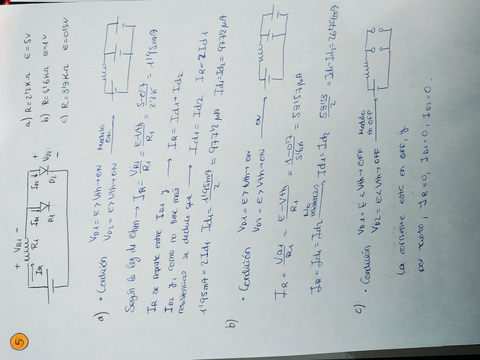 5
+ VR1 -
IR R1 ID1 ID2 + VD1 -
D1 D2
a) R=2'2KΩ E=5V
b) R=5'6KΩ E=1V
c) R=3'3KΩ E=0'15V
a) • Condición VD1 = E>Vth → ON
VD2 = E>Vth → ON
Modelo ON
Según la ley de Ohm → IR = VR1/R1 = E-Vth/R1 = 5-0'7/2'2K = 1'95mA
IR se reparte entre ID1 y → IR = Id1 + Id2
ID2 y, como no hay más
resistencias se deduce que → Id1 = Id2 IR = 2Id1
1'95mA = 2Id1 Id1 = 1'95mA/2 = 977'2µA Id1=Id2= 977'2µA
b) • Condición VD1 = E>Vth → ON
VD2 = E>Vth → ON
ON
IR = VR1/R1 = E-Vth/R1 = 1-0'7/5'6K = 53'57µA
IR = Id1 = Id2 Id1=Id2 = Id1=Id2= 26'79µA
c) • Condición VD1 = E<Vth → OFF
VD2 = E<Vth → OFF
Modelo en OFF
La corriente está en OFF, y
por tanto, IR=0, ID1=0, ID2=0.